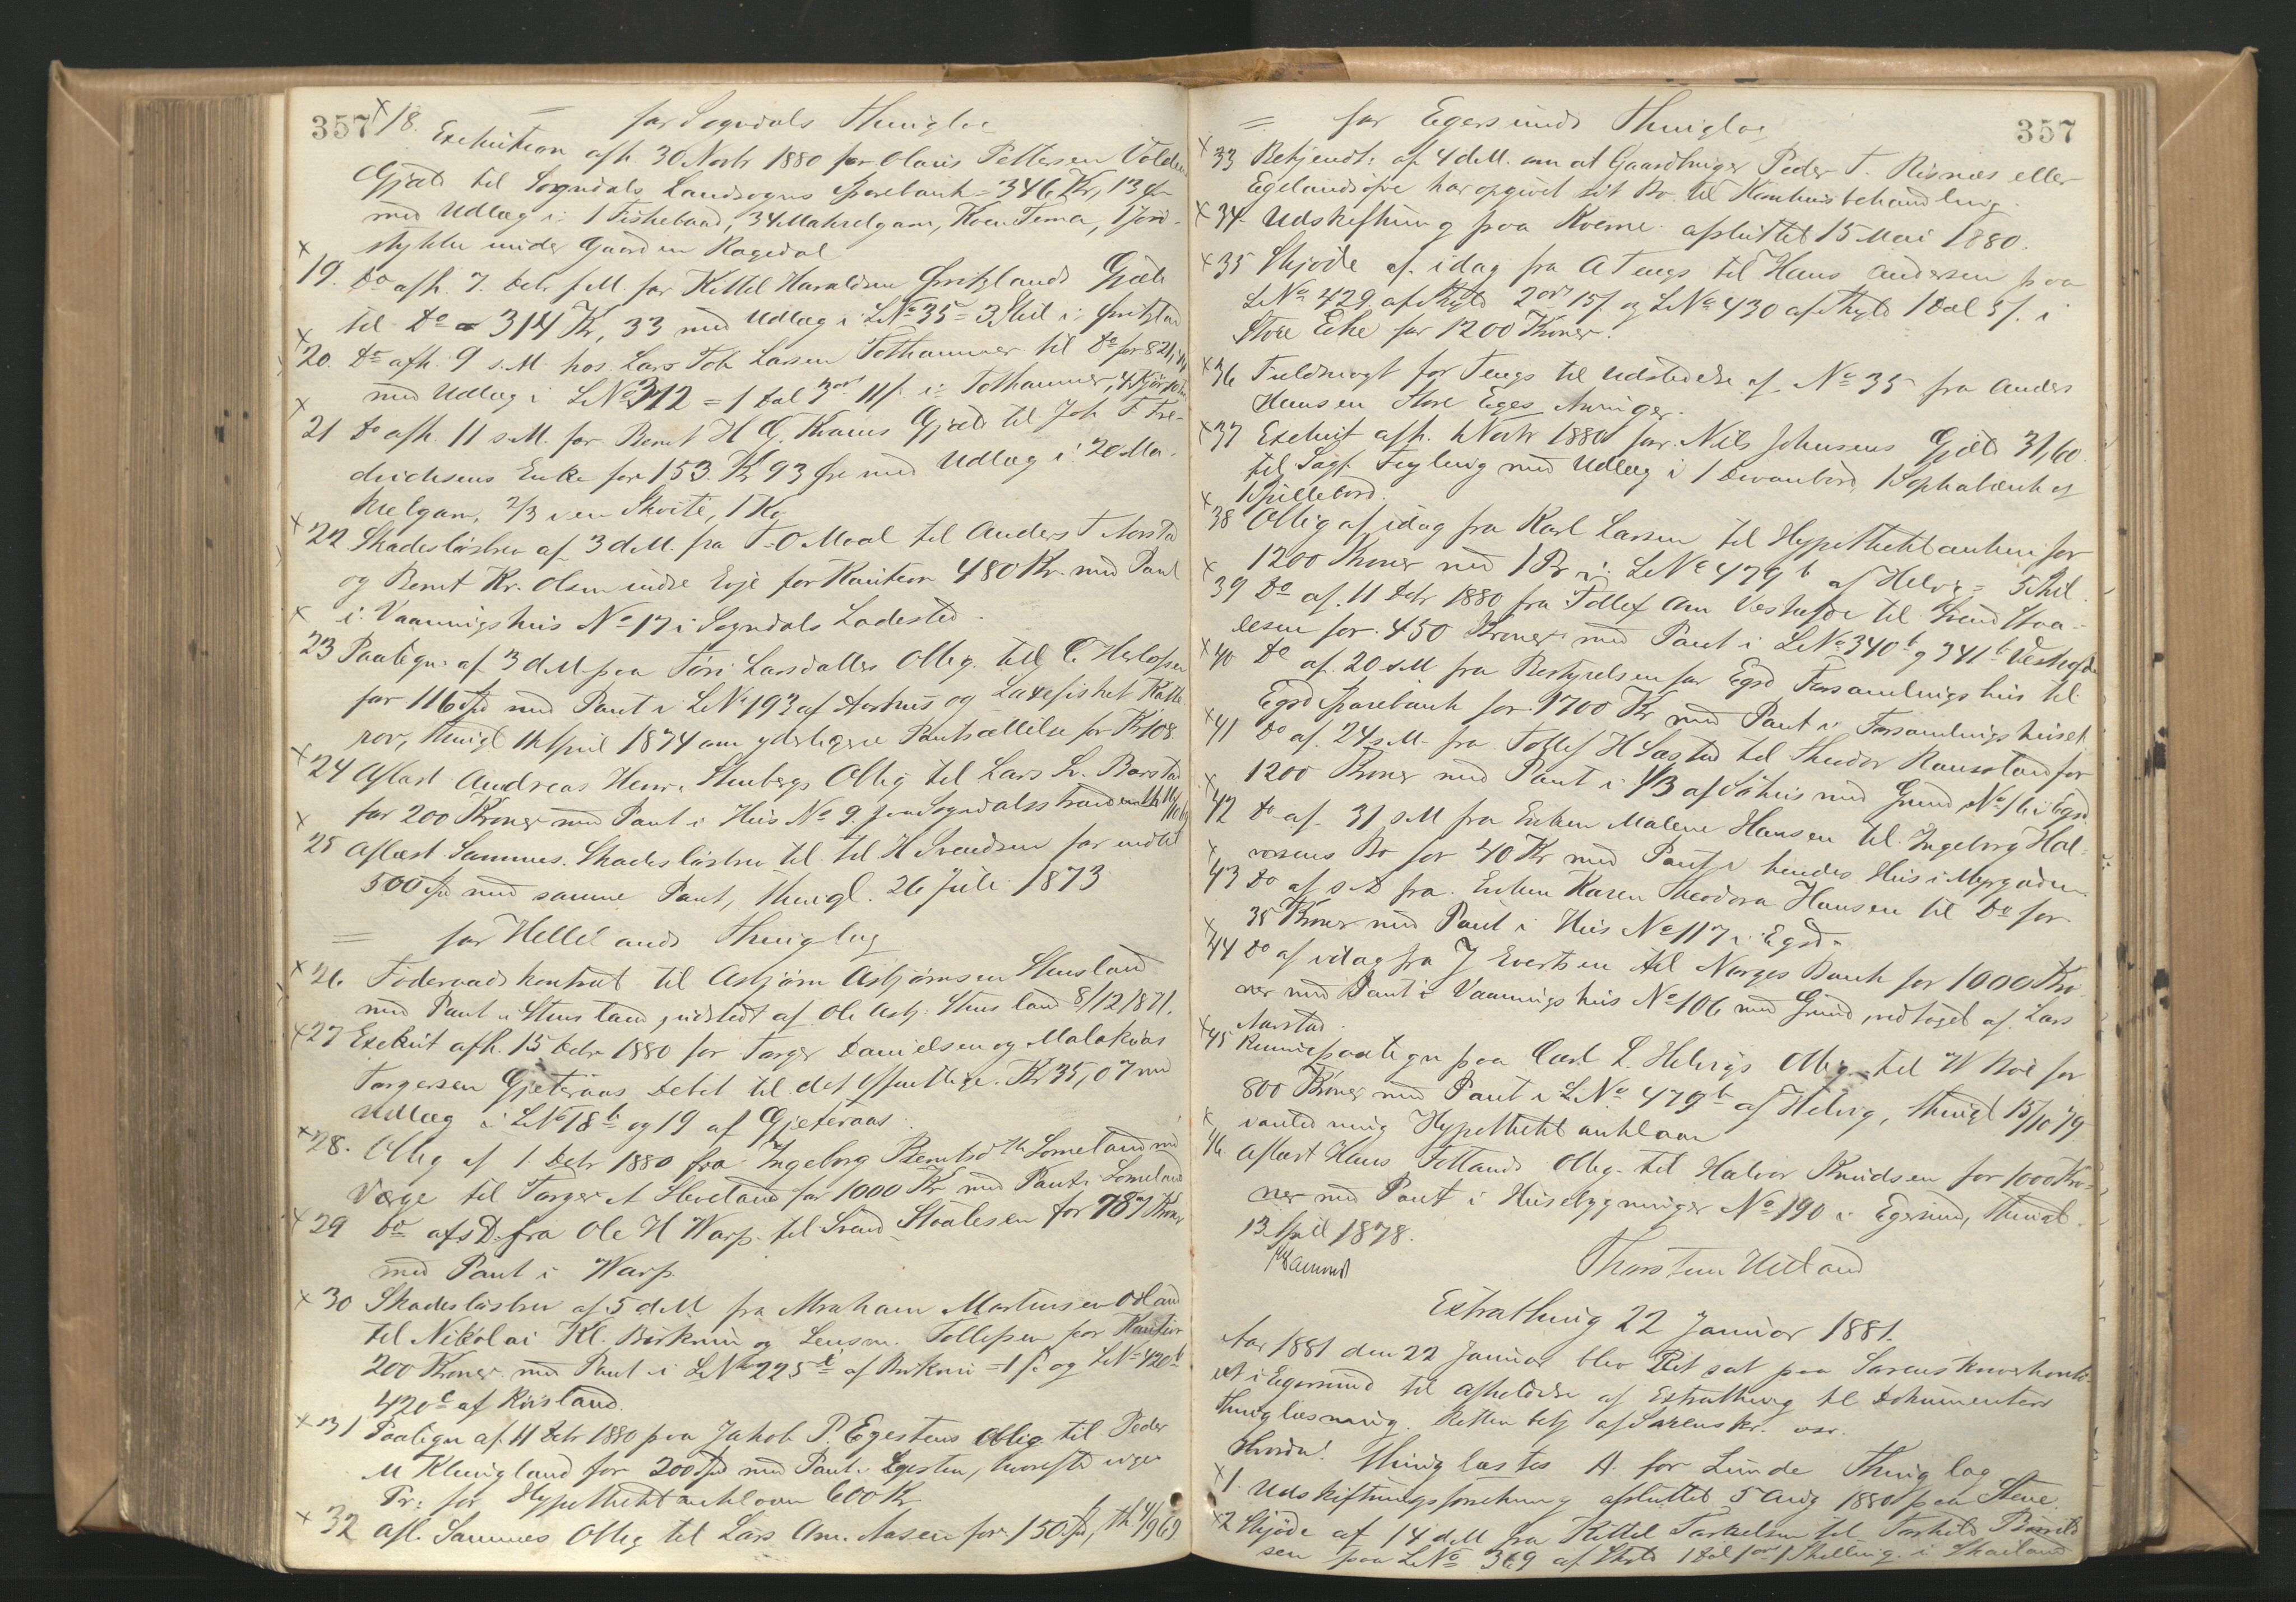 357
= for Sogndals Thinglag
18. Exekution afh. 30 Novbr 1880 for Olaus Pettersen
Gjæld til Sogndals Landsogns Sparebank = 346 Kr, 13 Øre
med Udlæg i 1 Fiskebaad, 34 Makrelgarn, 1 Jord-
stykke under Gaarden Rægedal
19. Do afh. 7. Debr s. M. for Kittel Haraldsen Gjæld
til Do = 314 Kr, 33 med Udlæg i LNo 35 = 3 Skil i
20. Do afh. 9 s. M. hos Lars Tob. Larsen Tothammer til Do for
med Udlæg i LNo 312 = 1 dal 3 ort 11 s. i Tothammer,
21 Do afh. 11 s. M. for Bernt H G. Gjæld til Joh. F. Fre-
drichsens Enke for 153 Kr 93 Øre med Udlæg i 20 Ma-
krelgarn, 2/3 i en Skøite, 1 Ko
22 Skadesløsbrev af 3 d. M. fra T. O. Moal til Anders T Aarstad
og Bernt Kr. Olsen indre Eie for Kaution 480 Kr. med Pant
i Vaaningshus No 17 i Sogndals Ladested.
23 Paategn. af 3 d M paa Tøri Larsdatters Oblig. til C.
for 116 Spd med Pant i LNo 193 af Aarhus og Laxefisket
rov, thingl 16 April 1874 om yderligere Pantsættelse for Kr 108.
24 Aflæst Andreas Henr. Stenbergs Oblig til Lars Barstad
for 200 Kroner med Pant i Hus No 9 paa Sogndalsstranden
25 Aflæst Sammes Skadesløsbrev til H Svendsen for indtil
500 Spd med samme Pant, thingl. 26 Juli 1873
= for Hellelands Thinglag
26. Føderaadskontrakt til Asbjørn Asbjørnsen Stensland
med Pant i Stensland, udstedt af Ole Asbj. Stensland 8/12 1871.
27 Exekut afh. 15 Debr 1880 for Torger Danielsen og Malakias
Torgersen Gjeteraas Debet til det offentlige. Kr 35,07 med
Udlæg i LNo 18 b og 19 af Gjeteraas.
28. Oblig af 1. Debr 1880 fra Ingeborg Berntsd Lomeland med
Værge til Torger A Heveland for 1000 Kr med Pant i Lomeland
29 Do af s. D. fra Ole H Warp til Svend Staalesen for 787 Kroner
med Pant i Warp.
30 Skadesløsbrev af 5 d M fra Abraham Martinsen
til Nikolai Kl. Birkrem og Lensm. Tollefsen for Kaution
200 Kroner med Pant i LNo 225 af Birkrem = 1 s. og LNo 420 b
420 c af Røisland.
31 Paategn af 11 Debr 1880 paa Jakob P. Egestens Oblig til Peder
M Klungland for 200 Spd med Pant i Egesten, hvorefter viger
Pr: for Hypothekbanklaan 600 Kr
32 afl. Sammes Oblig til Lars Am. Aasen for 150 Spd,
357
= for Egersunds Thinglag
33 Bekjendt: af 4 d M. om at Gaardbruger Peder T. Risnæs eller
Egelandsøre har opgivet sit Bo til Konkursbehandling.
34 Udskiftning paa Kverne afsluttet 15 Mai 1880.
35 Skjøde af idag fra A Tengs til Hans Andersen paa
LNo 429 af Skyld 2 ort 15 s. og LNo 430 af Skyld 1 dal 5 s. i
Store Eike for 1200 Kroner.
36 Fuldmagt for Tengs til Udstedelse af No 35 fra Anders
Hansen Store Eges Arvinger.
37 Exekut afh. Novbr 1880 for Nils Johnsens Gjæld 31,60
til Sagf. Feyling med Udlæg i 1 Divanbord, 1 Sophabænk og
1 Spillebord.
38 Oblig af idag fra Karl Larsen til Hypothekbanken for
1200 Kroner med 1 Pr. i LNo 479 b af Helvig = 5 Skil.
39 Do af 11 Debr 1880 fra Tollef Am Vestersjøe til Svend Staa-
lesen for 450 Kroner med Pant i LNo 340 b og 341 b
40 Do af 20 s. M. fra Bestyrelsen for Egsd Forsamlingshus til
Egsd Sparebank for 1700 Kr med Pant i Forsamlingshuset
41 Do af 24 s. M. fra Tollef H Saxstad til Theodor for
1200 Kroner med Pant i 1/3 af Søhus med Grund No 16 i Egsd.
42 Do af 31 s M fra Enken Malene Hansen til Ingeborg Hal-
vorsens Bo for 40 Kr med Pant i hendes Hus i Myrgaden
43 Do af s D fra Enken Karen Theodora Hansen til Do for
35 Kroner med Pant i Hus No 117 i Egsd.
44 Do af idag fra J Evertsen til Norges Bank for 1000 Kro-
ner med Pant i Vaaningshus No 106 med Grund, vedtaget af Lars
Aarstad.
45 paategn paa Carl L. Helvigs Oblig. til W Bøe for
800 Kroner med Pant i LNo 479 b af Helvig, thingl 15/10 79
Hypothekbanklaan
46 Aflæst Hans Fotlands Oblig. til Halvor Knudsen for 1000 Kro-
ner med Pant i Husebygninger No 190 i Egersund, thingl.
13 April 1878.
Thorsten Hetland
Extrathing 22 Januar 1881.
Aar 1881 den 22 Januar blev Ret sat paa Sorenskriverkonto-
ret i Egersund til Afholdelse af Extrathing til Dokumenters
Thinglæsning. Retten betj. af Sorenskr. osv.
Hvorda! Thinglæstes A. for Lunde Thinglag
1. Udskiftningsforretning afsluttet 5 Aug 1880 paa Stene.
2 Skjøde af 14 d M fra Kittel Tarkelsen til Tarkild
sen paa LNo 369 af Skyld 1 dal 1 ort 1 Skilling i Skailand